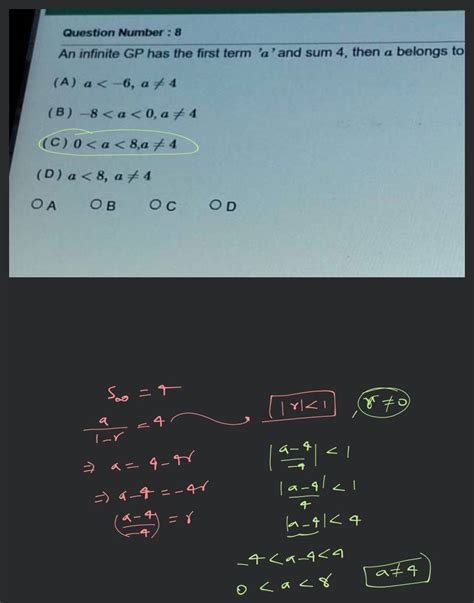 Question Number : 8
An infinite GP has the first term 'a' and sum 4, then a belongs to
(A) a < -6, a ≠ 4
(B) -8 < a < 0, a ≠ 4
(C) 0 < a < 8, a ≠ 4
(D) a < 8, a ≠ 4
A B C D
S∞ = 4
a/(1-r) = 4
⇒ a = 4 - 4r
⇒ a - 4 = -4r
(a-4)/(-4) = r
|r| < 1, r ≠ 0
|(a-4)/-4| < 1
|a-4|/4 < 1
|a-4| < 4
-4 < a-4 < 4
0 < a < 8
a ≠ 4